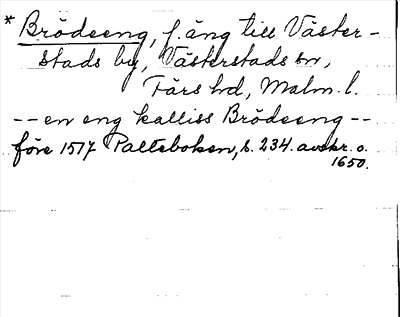 * Brödeeng, f. äng till Väster-
stads by, Västerstads sn,
Färs hd, Malm. l.
-- en eng kalliss Brödeeng --
före 1517 Palteboken, s. 234. avskr. o.
1650.